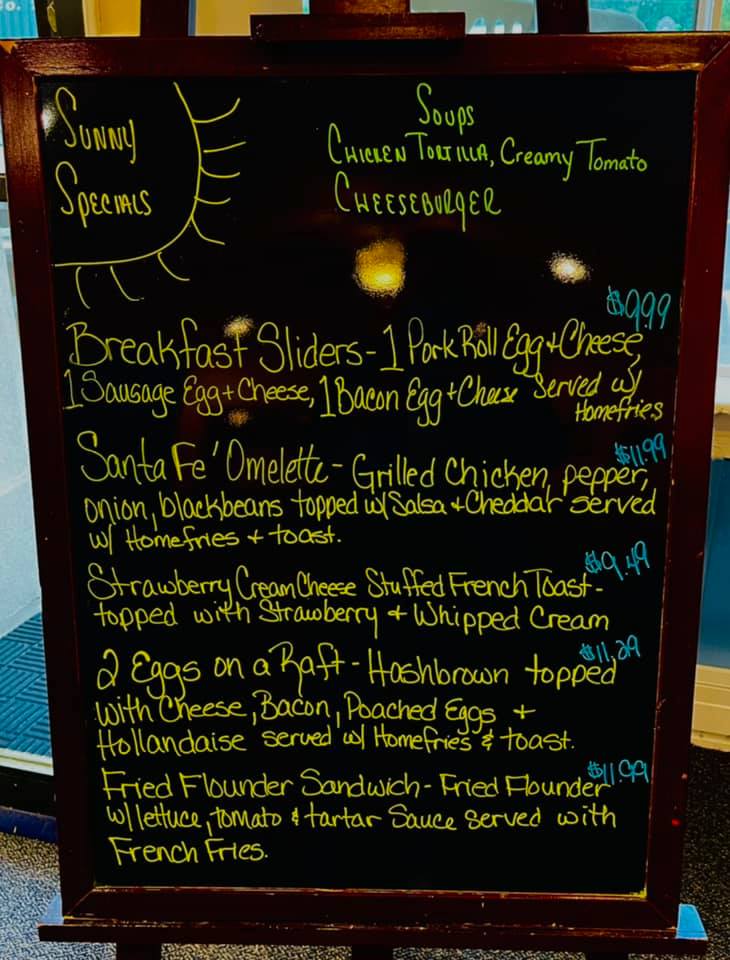 Co.
Sunny
Specials
Soups
Chicken Tortilla, Creamy Tomato
Cheeseburger
$9.99
Breakfast Sliders - 1 Pork Roll Egg + Cheese,
1 Sausage Egg + Cheese, 1 Bacon Egg + Cheese Served w/
Homefries
$11.99
Santa Fe' Omelette - Grilled Chicken, pepper,
onion, blackbeans topped w/ Salsa + Cheddar served
w/ Homefries + toast.
$9.49
Strawberry Cream Cheese Stuffed French Toast -
topped with Strawberry & Whipped Cream
$11.29
2 Eggs on a Raft - Hashbrown topped
with Cheese, Bacon, Poached Eggs +
Hollandaise served w/ Homefries & toast.
$11.99
Fried Flounder Sandwich - Fried Flounder
w/ lettuce, tomato & tartar Sauce served with
French Fries.